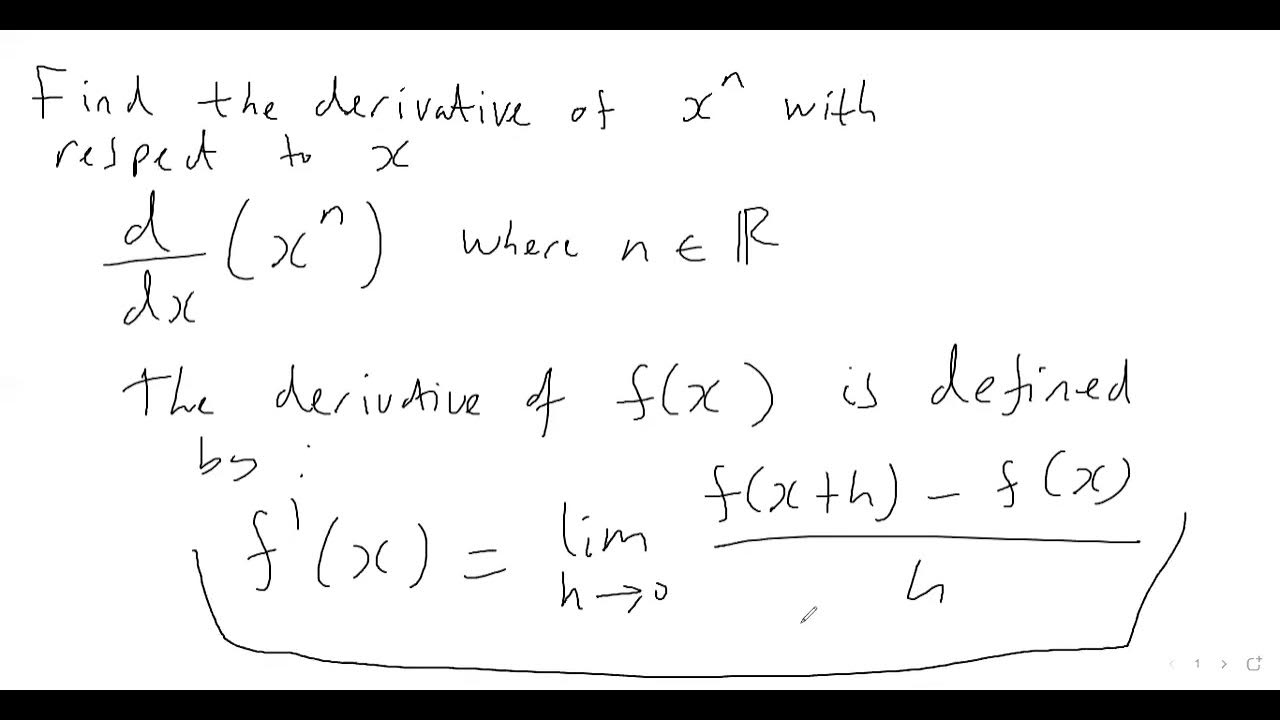 Find the derivative of xⁿ with
respect to x
d/dx (xⁿ) where n ∈ ℝ
The derivative of f(x) is defined
by :
f'(x) = lim h→0 (f(x+h) - f(x))/h
< 1 >